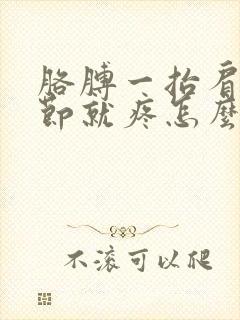 胳膊一抬肩
節就疼怎麼
不滚可以爬